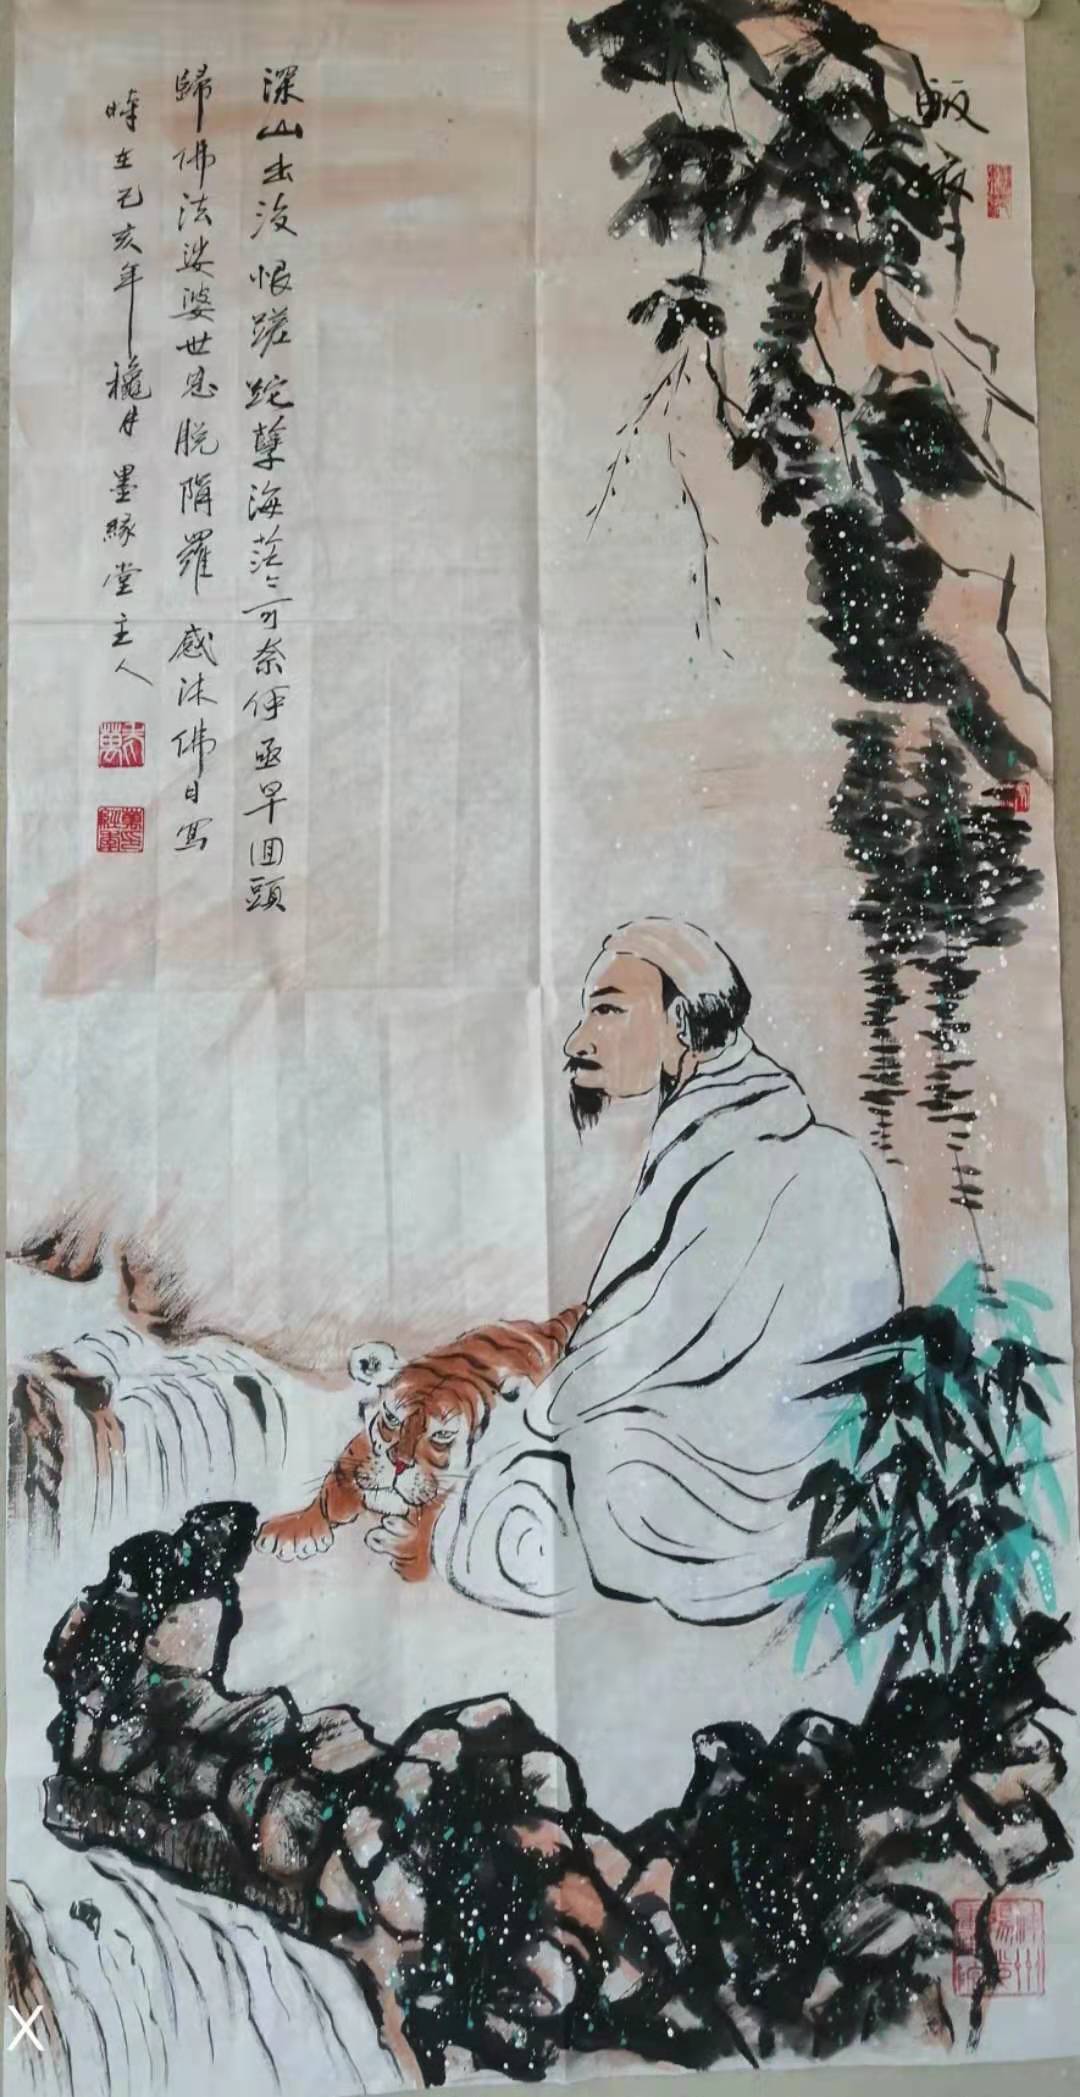 皈依
深山出没恨蹉跎孽海茫々可奈何亟早回頭
歸佛法娑婆世恩脱隅羅 感沐佛日寫
時在己亥年穐月墨緣堂主人
X